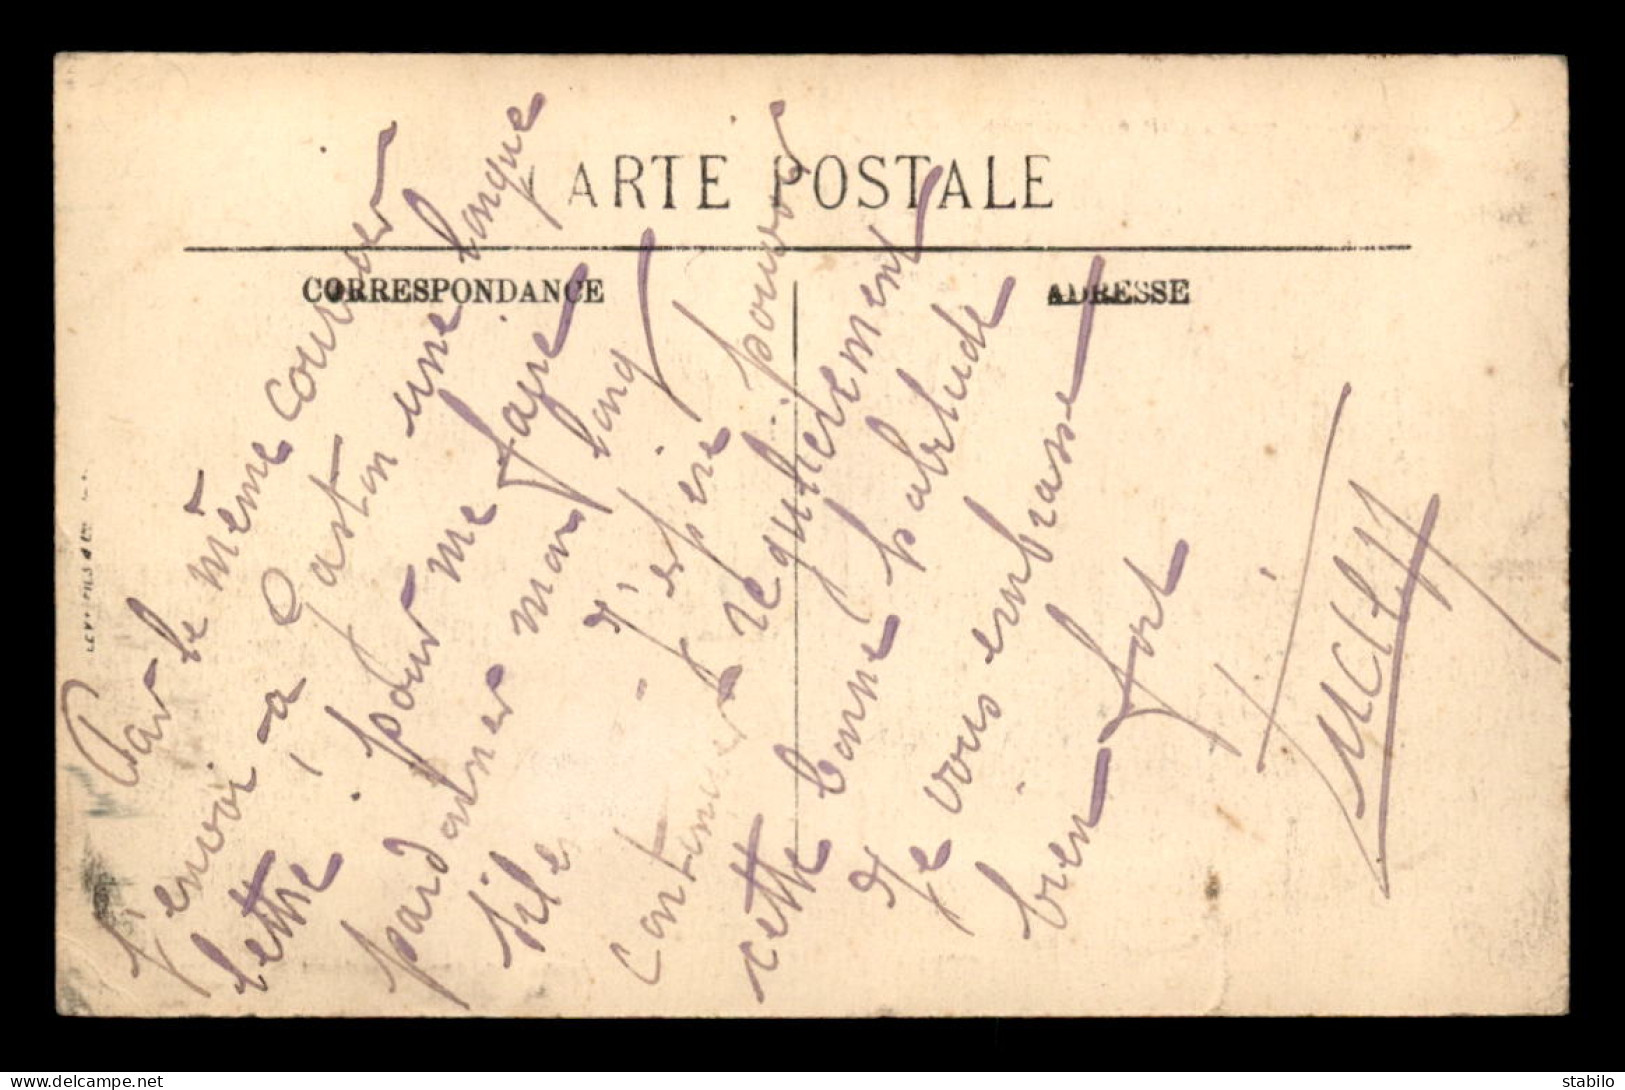 CARTE POSTALE
CORRESPONDANCE
ADRESSE
Par le même courrier
j'envoi à Gaston une longue
lettre, pour me faire
pardonner mon long
sile
- J'espère pouvoir
continuer régulièrement
cette bonne habitude
Je vous embrasse
bien fort
LEVY FILS & Cie
delcampe.net
stabilo